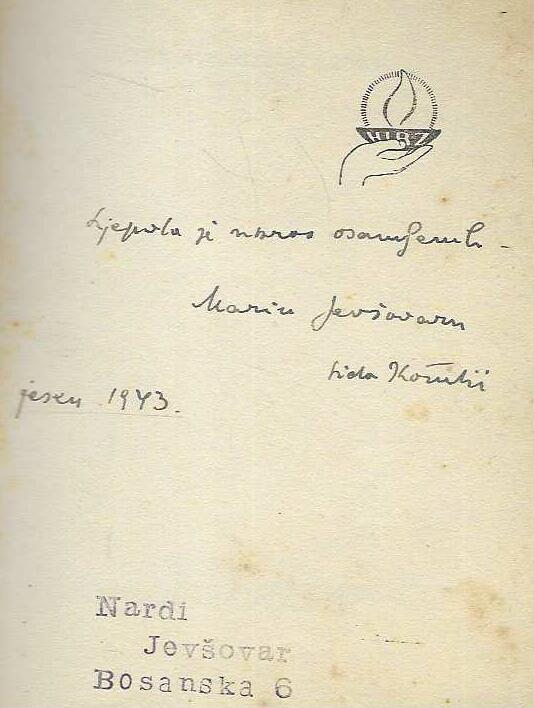 HIBZ
Ljepota je osamljenih -
Mariu Jevšovaru
Sida Košutić
jesen 1943.
Nardi
Jevšovar
Bosanska 6